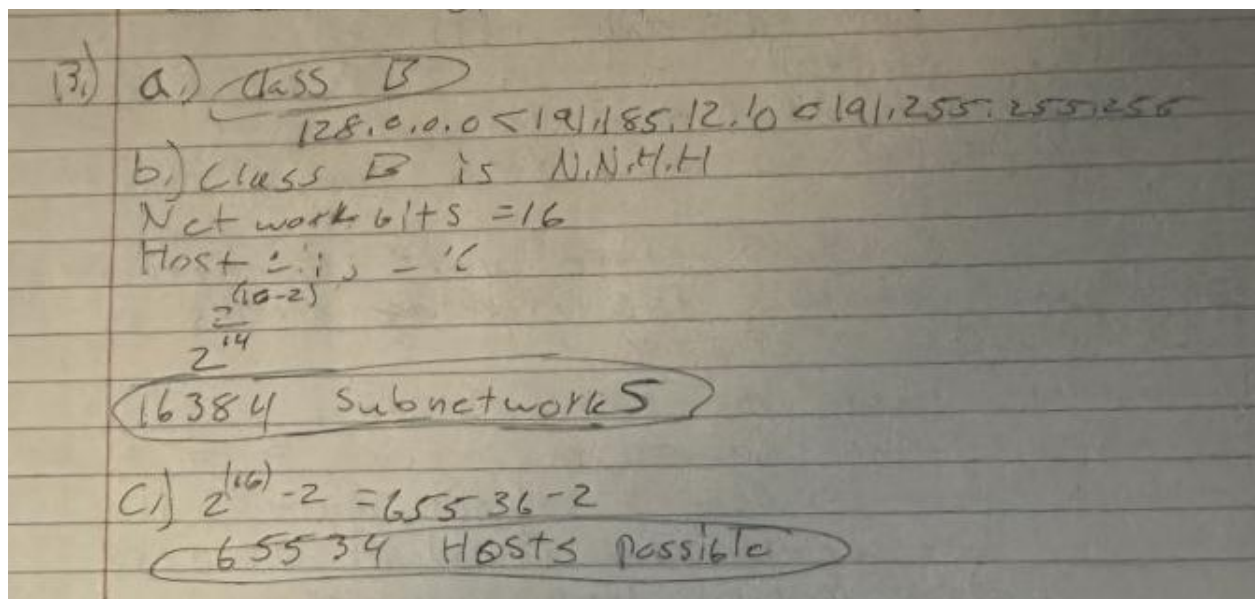 13.) a.) Class B
128.0.0.0 < 191.185.12.10 < 191.255.255.255
b.) Class B is N.N.H.H
Network bits = 16
Host =
2^(16-2)
2^14
16384 Subnetworks
C.) 2^(16) - 2 = 65536 - 2
65534 Hosts possible